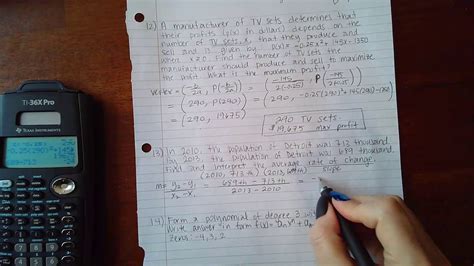 TI-36X Pro
12.) A manufacturer of TV sets determines that
their profits (p(x) in dollars) depends on the
number of TV sets, x, that they produce and
sell and is given by p(x) = -0.25x² + 145x - 1350
where x ≥ 0. Find the number of TV sets the
manufacturer should produce and sell to maximize
the profit. What is the maximum profit?
Vertex = (-b/2a, P(-b/2a)) = (-145/2(-0.25), P(-145/2(-0.25)))
= (290, P(290)) = (290, -0.25(290)²+145(290)-1350)
= (290, 19675)
290 TV sets
$19,675 max profit
13.) In 2010, the population of Detroit was 713 thousand.
In 2013, the population of Detroit was 689 thousand.
Find and interpret the average rate of change.
(2010, 713 th) (2013, 689 th)
m = y₂-y₁/x₂-x₁ = 689 th - 713 th/2013 - 2010 =
14.) Form a polynomial of degree 3
Write answer in form f(x) = aₙxⁿ +
Zeros: -4, 3, 2